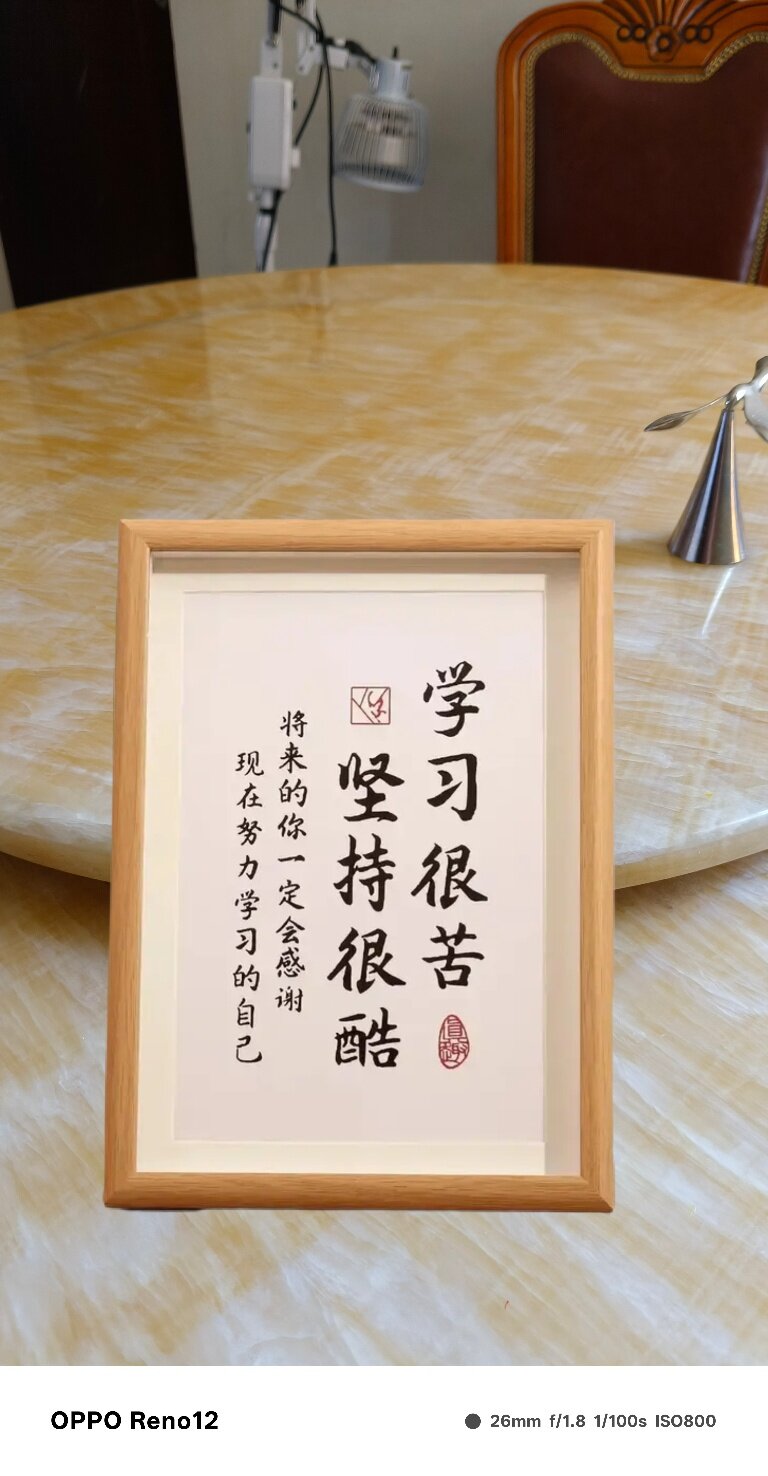 学习很苦
坚持很酷
将来的你一定会感谢
现在努力学习的自己
OPPO Reno12
26mm f/1.8 1/100s ISO800